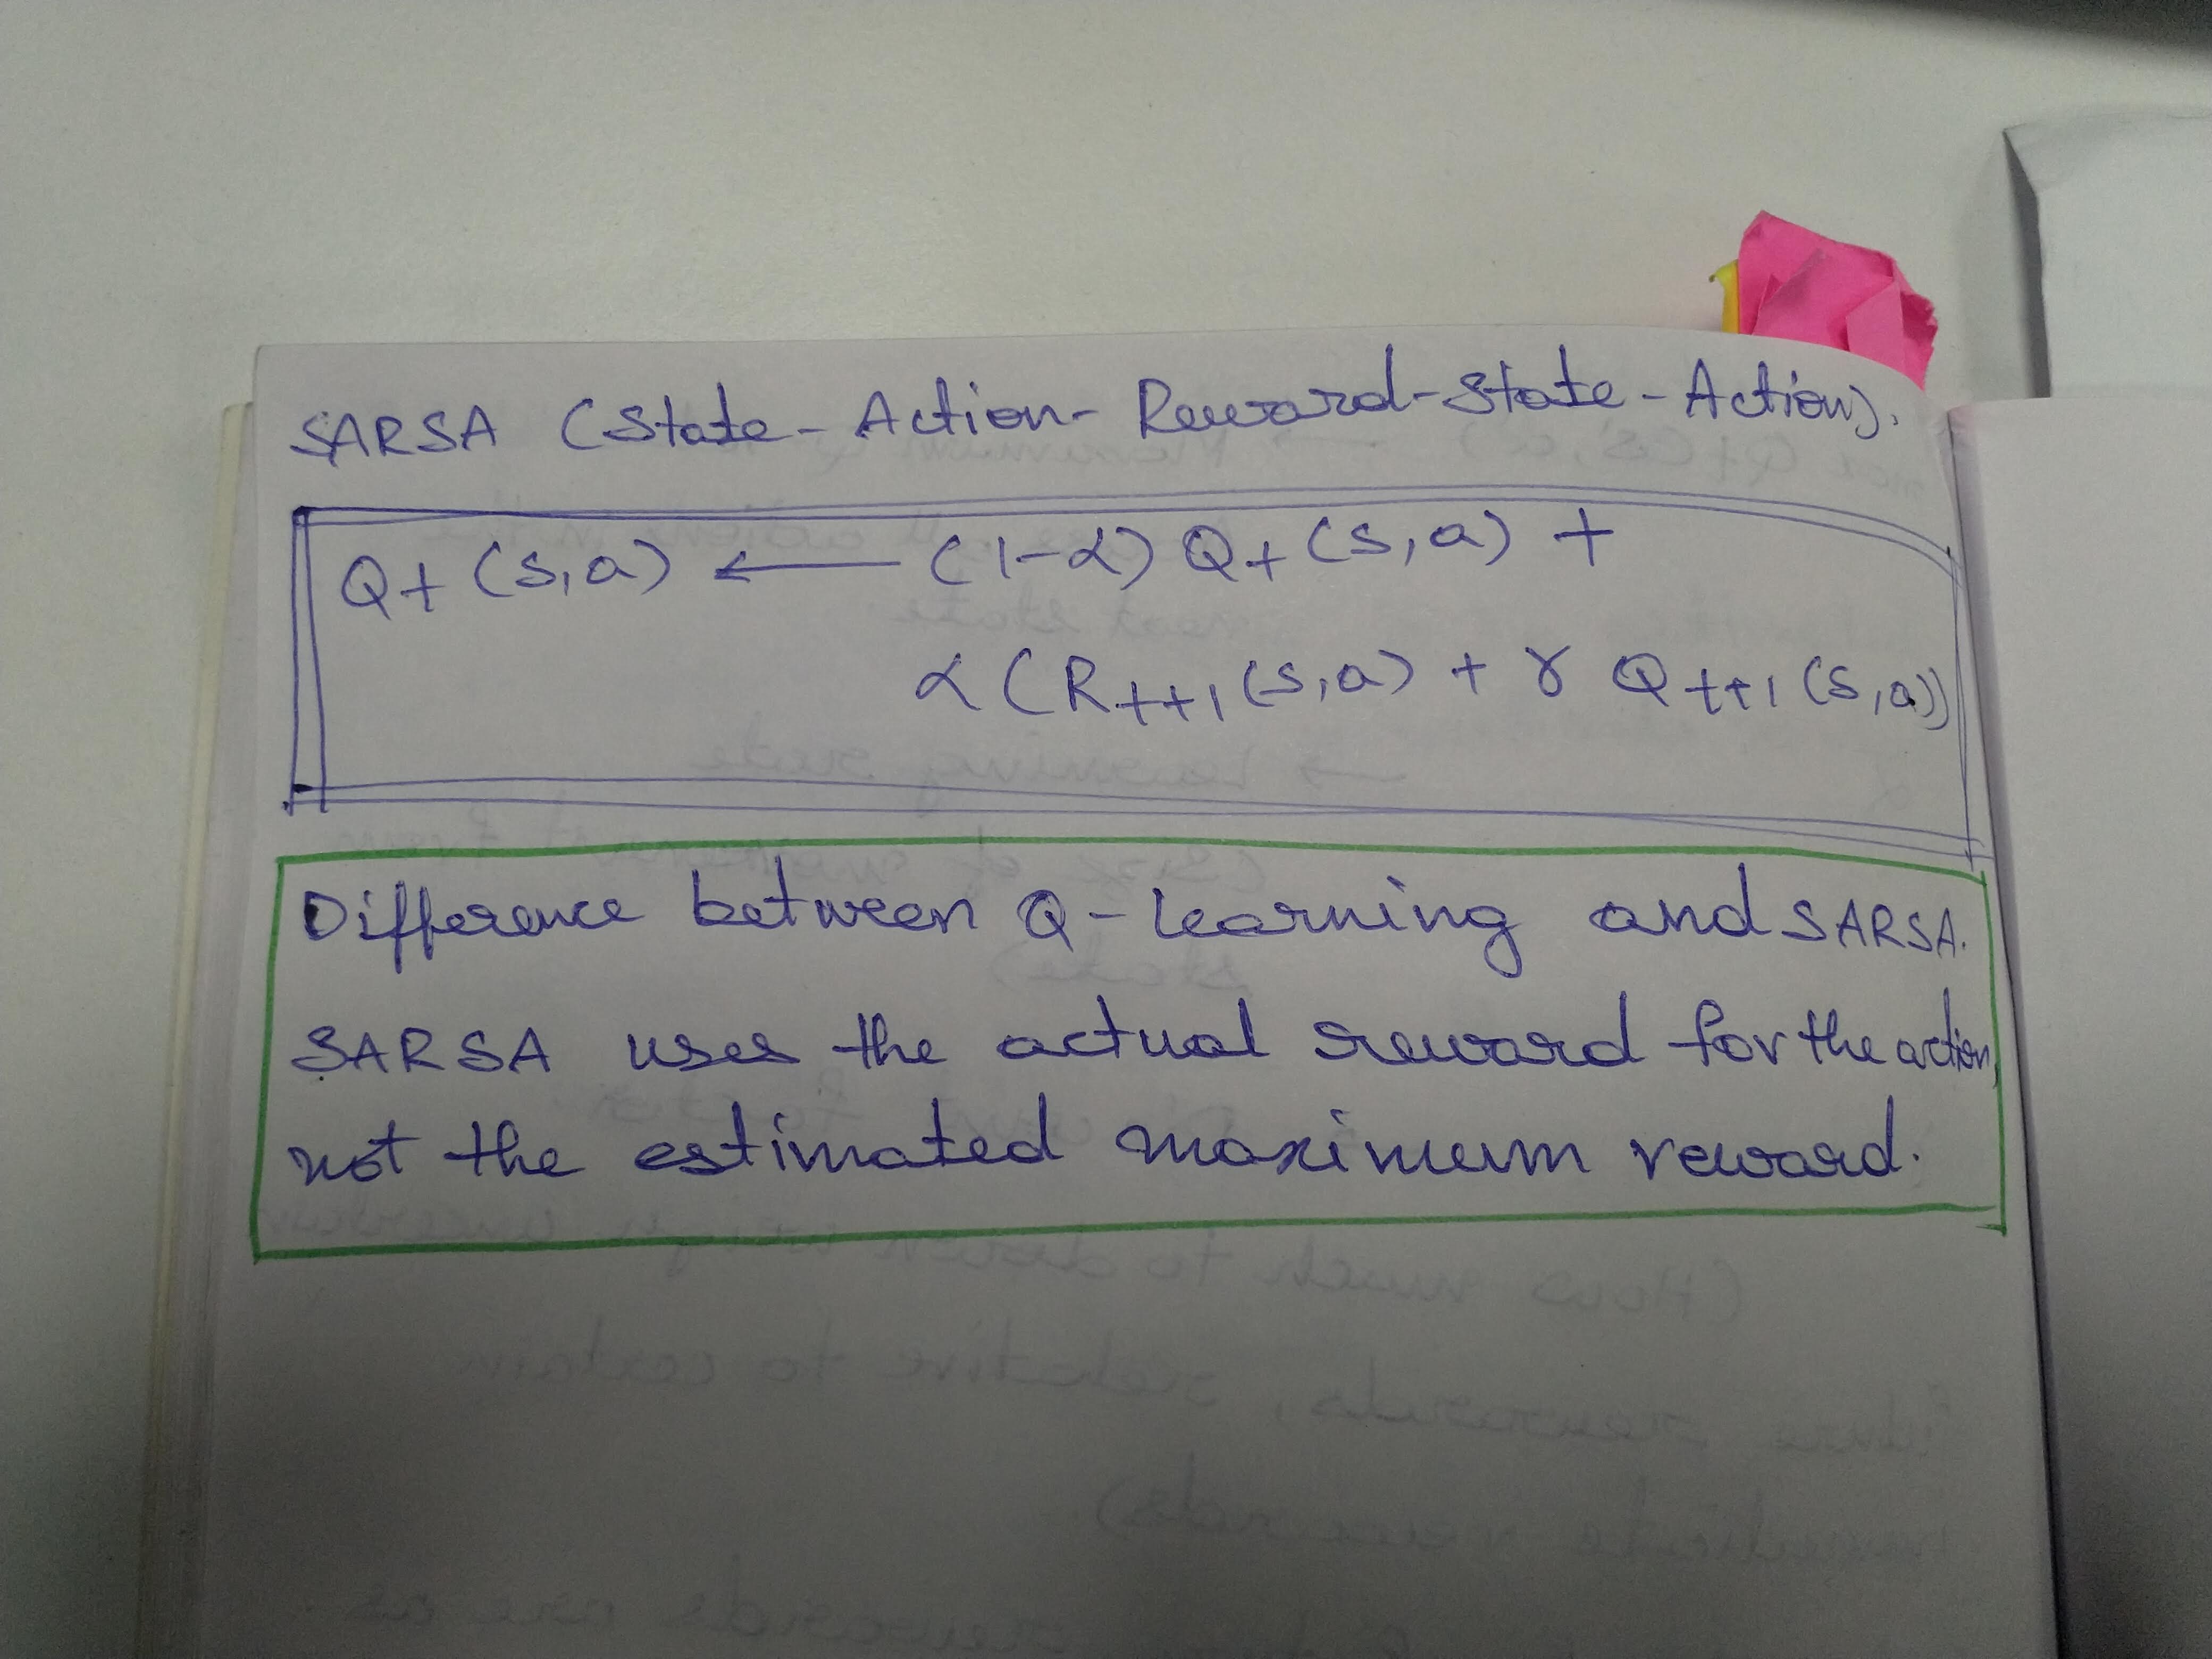 SARSA (State-Action-Reward-State-Action).
Qt (s,a) ← (1-α) Qt (s,a) +
α (Rt+1 (s,a) + γ Qt+1 (s,a))
Difference between Q-Learning and SARSA.
SARSA uses the actual reward for the action,
not the estimated maximum reward.